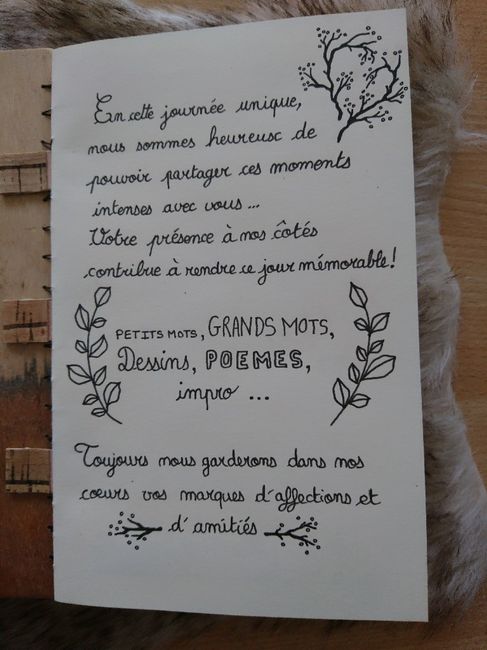 En cette journée unique,
nous sommes heureusc de
pouvoir partager ces moments
intenses avec vous ...
Votre présence à nos côtés
contribue à rendre ce jour mémorable!
PETITS MOTS, GRANDS MOTS,
Dessins, POEMES,
impro ...
Toujours nous garderons dans nos
cœurs vos marques d'affections et
d'amitiés